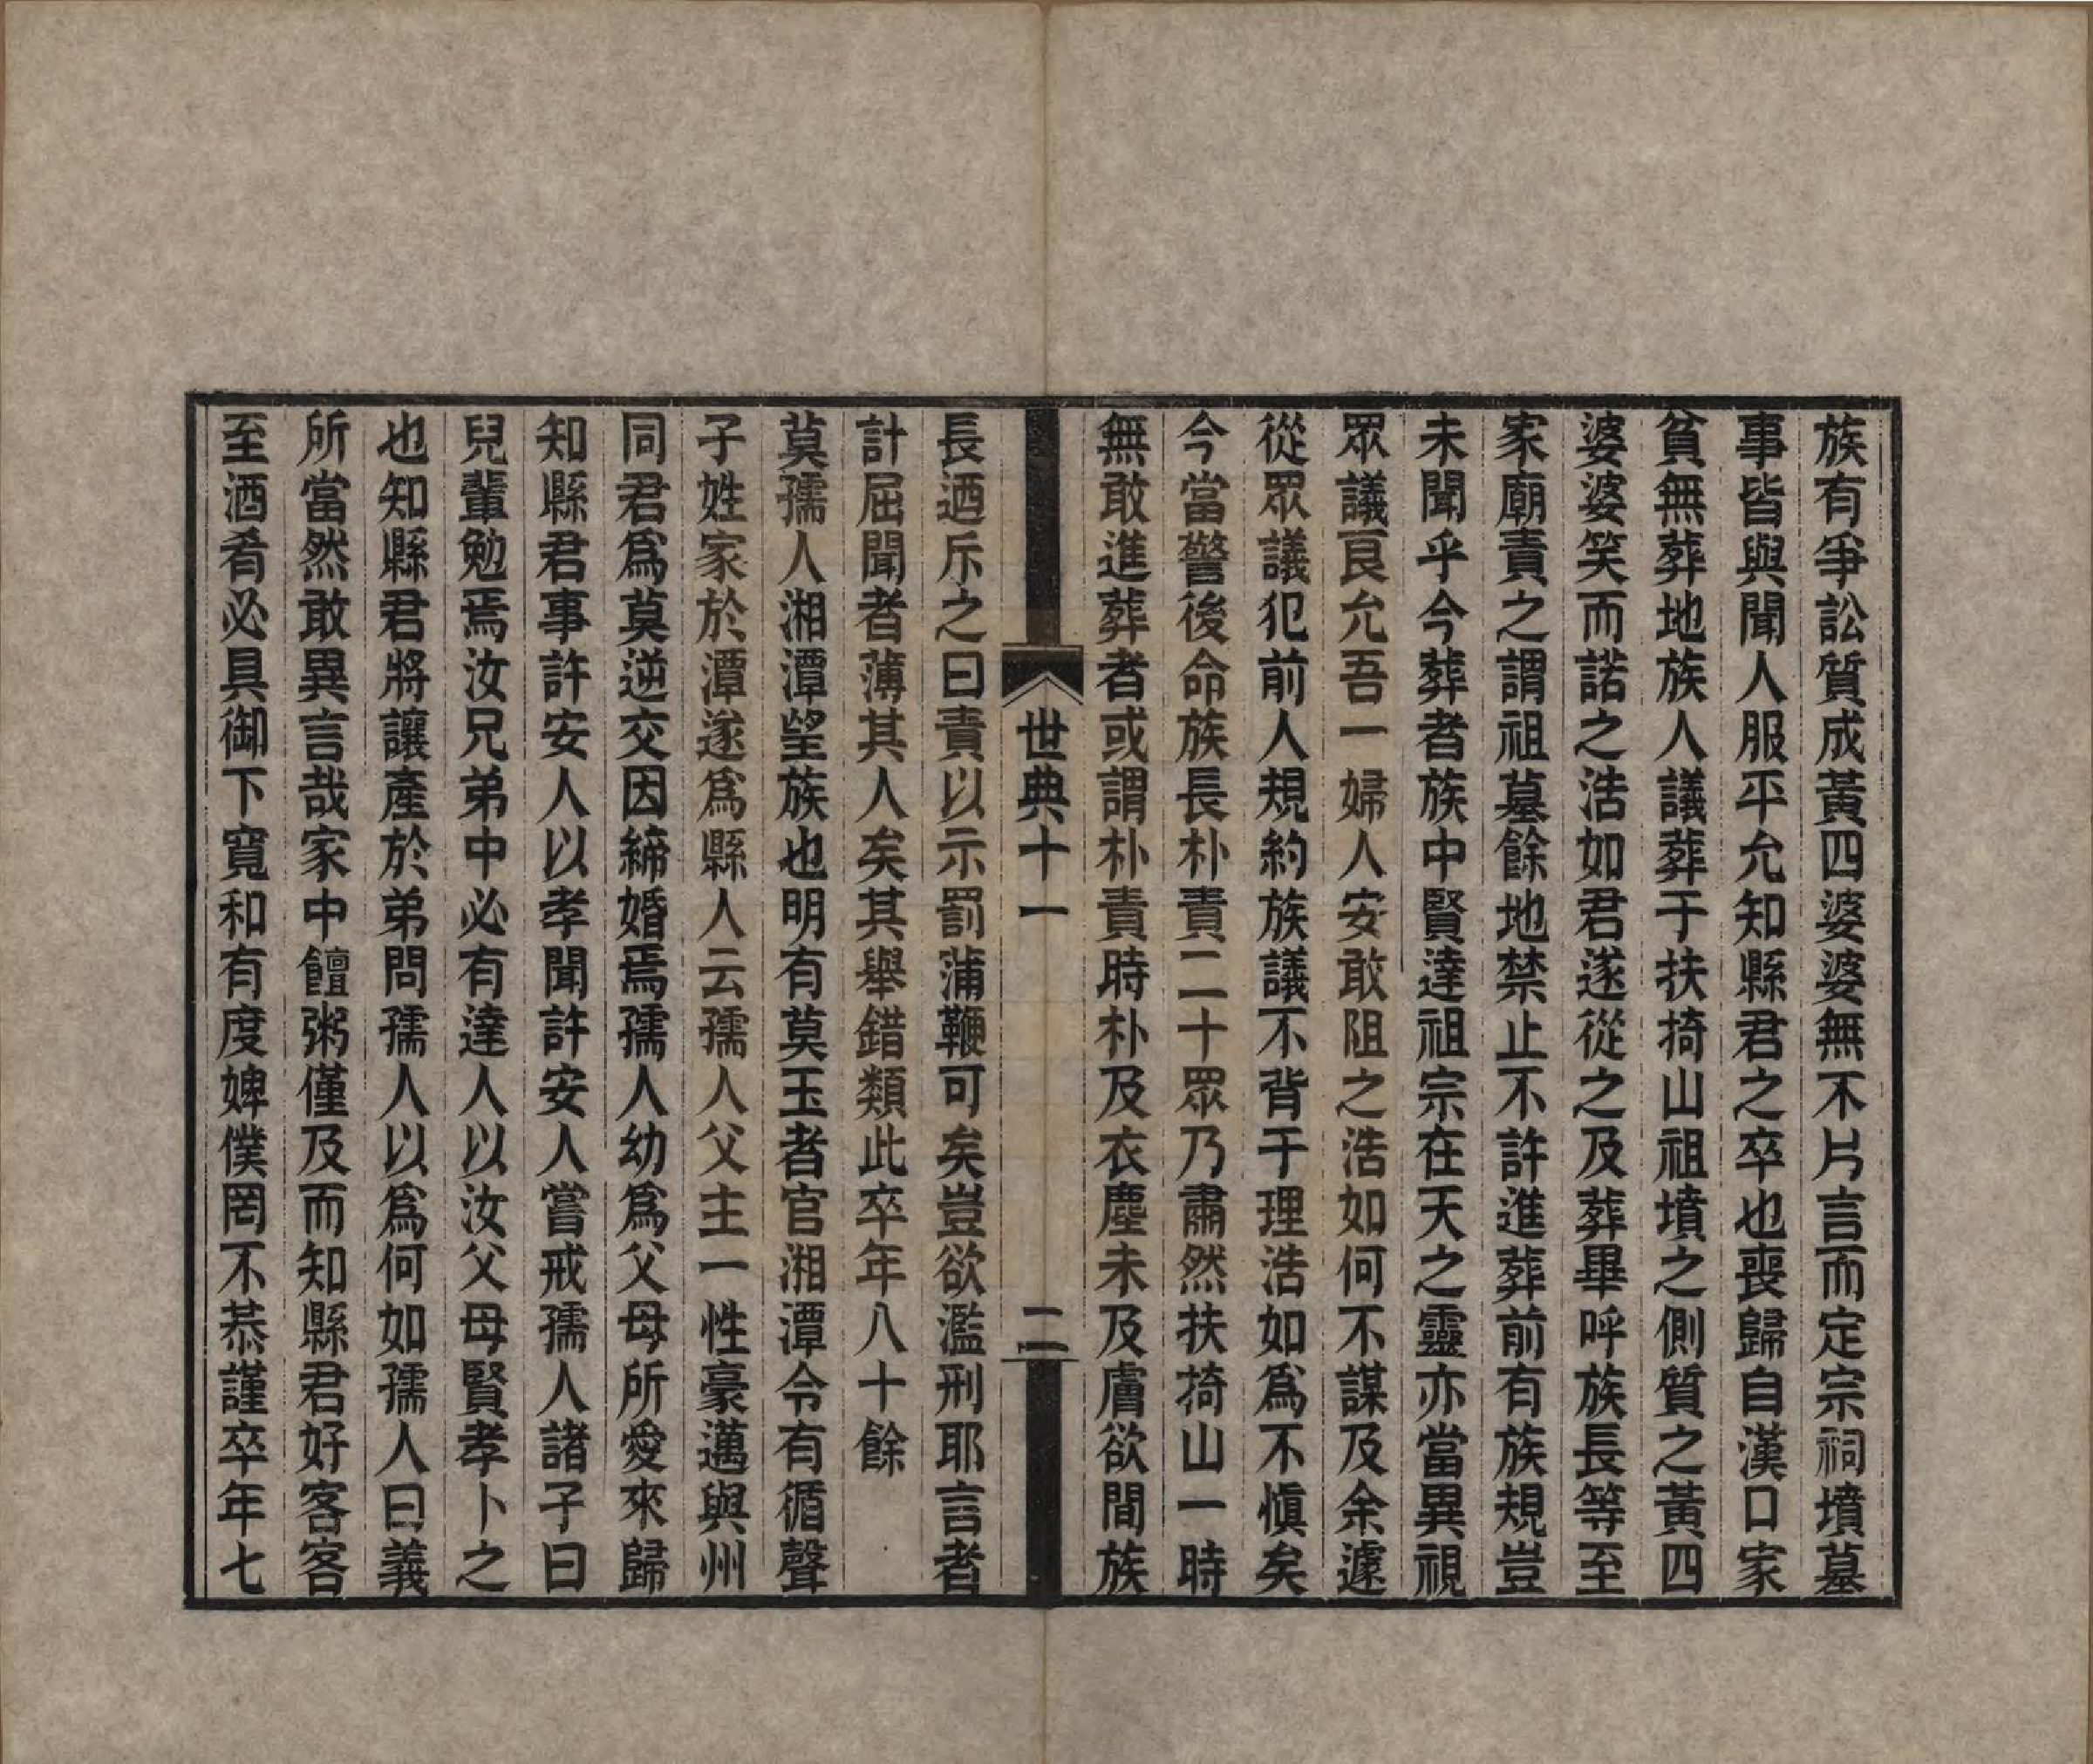 族有爭訟質成黃四婆婆無不片言而定宗祠墳墓
事皆與聞人服平允知縣君之卒也喪歸自漢口家
貧無葬地族人議葬于扶掎山祖墳之側質之黃四
婆婆笑而諾之浩如君遂從之及葬畢呼族長等至
家廟責之謂祖墓餘地禁止不許進葬前有族規豈
未聞乎今葬者族中賢達祖宗在天之靈亦當異視
眾議良允吾一婦人安敢阻之浩如何不謀及余遽
從眾議犯前人規約族議不背于理浩如爲不慎矣
今當警後命族長朴責二十眾乃肅然扶掎山一時
無敢進葬者或謂朴責時朴及衣塵未及膚欲間族
世典十一
二
長迺斥之曰責以示罰蒲鞭可矣豈欲濫刑耶言者
計屈聞者薄其人矣其舉錯類此卒年八十餘
莫孺人湘潭望族也明有莫玉者官湘潭令有循聲
子姓家於潭遂爲縣人云孺人父主一性豪邁與州
同君爲莫逆交因締婚焉孺人幼爲父母所愛來歸
知縣君事許安人以孝聞許安人嘗戒孺人諸子曰
兒輩勉焉汝兄弟中必有達人以汝父母賢孝卜之
也知縣君將讓產於弟問孺人以爲何如孺人曰義
所當然敢異言哉家中饘粥僅及而知縣君好客客
至酒肴必具御下寬和有度婢僕罔不恭謹卒年七